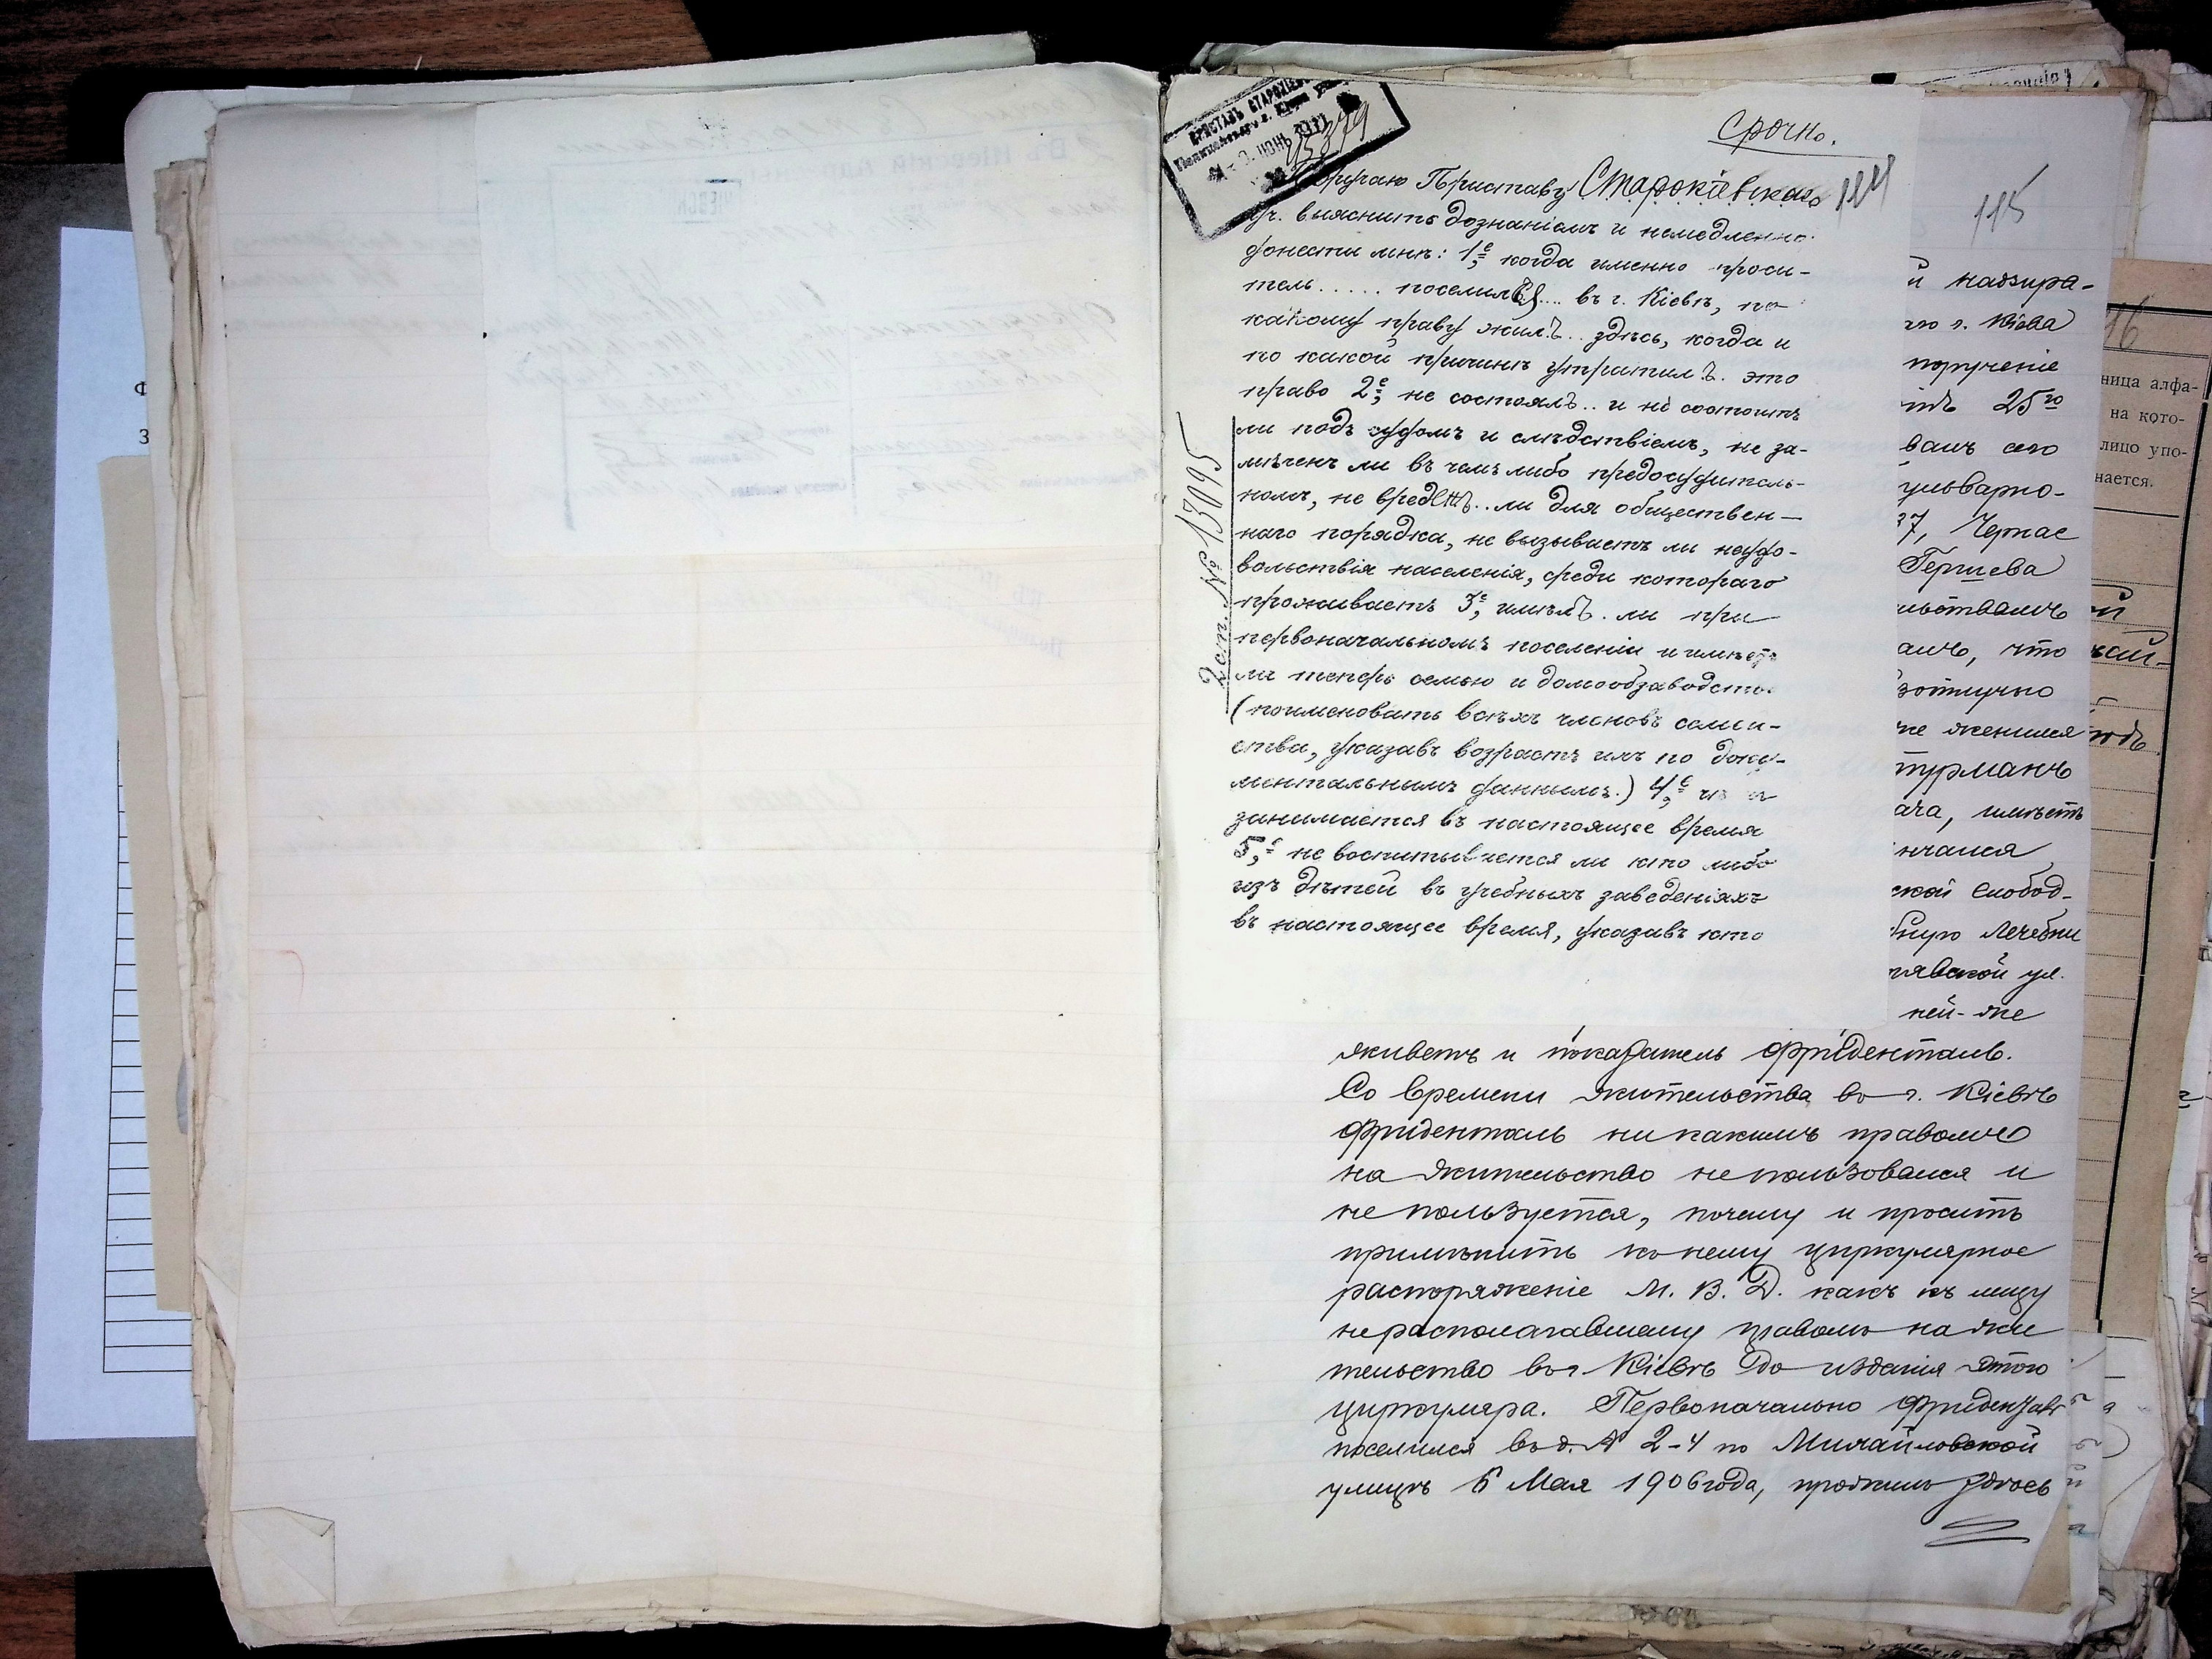 ПРИСТАВЪ СТАРОКІЕВ
Срочно.
114
Поручаю Приставу Старокіевскаго
уч. выяснить дознаніемъ и немедленно
донести мнѣ: 1е, когда именно проси-
тель..... поселился.... въ г. Кіевѣ, по
какому праву жилъ.. здѣсь, когда и
по какой причинѣ утратилъ. это
право 2е, не состоялъ.. и не состоитъ
ли подъ судомъ и слѣдствіемъ, не за-
мѣченъ ли въ чемъ либо предосудитель-
номъ, не вреденъ.. ли для обществен-
наго порядка, не вызываетъ ли неудо-
вольствія населенія, среди котораго
проживаетъ 3е, имѣлъ. ли при
первоначальномъ поселеніи и имѣетъ
ли теперь семью и домообзаводство
(поименовать всѣхъ членовъ семей-
ства, указавъ возрастъ ихъ по доку-
ментальнымъ даннымъ.) 4е,
занимается въ настоящее время
5,е не воспитывается ли кто либо
изъ дѣтей въ учебныхъ заведеніяхъ
въ настоящее время, указавъ кто
2 ст. № 13095
115
й надзира-
го г. Кіева
порученіе
25го
валъ сею
ульварно-
37, Черкас
Гершева
льствамъ
алъ, что
зотлучно
не женился
турманъ
ача, имѣетъ
нчался
ской Слобод-
бнуро Лечебни
лявской ул.
ней-же
живетъ и показатель Фриденталь.
Со времени жительства въ г. Кіевѣ
Фриденталь никакимъ правомъ
на жительство не пользовался и
не пользуется, почему и проситъ
примѣнить къ нему циркулярное
распоряженіе М. В. Д. какъ къ лицу
не располагавшему правомъ на жи
тельство въ г. Кіевѣ до изданія этого
циркуляра. Первоначально Фриденталь
поселился въ д. № 2-4 по Михайловской
улицѣ 5 Мая 1906 года, проживъ здѣсь
16
ница алфа-
на кото-
лицо упо-
нается.